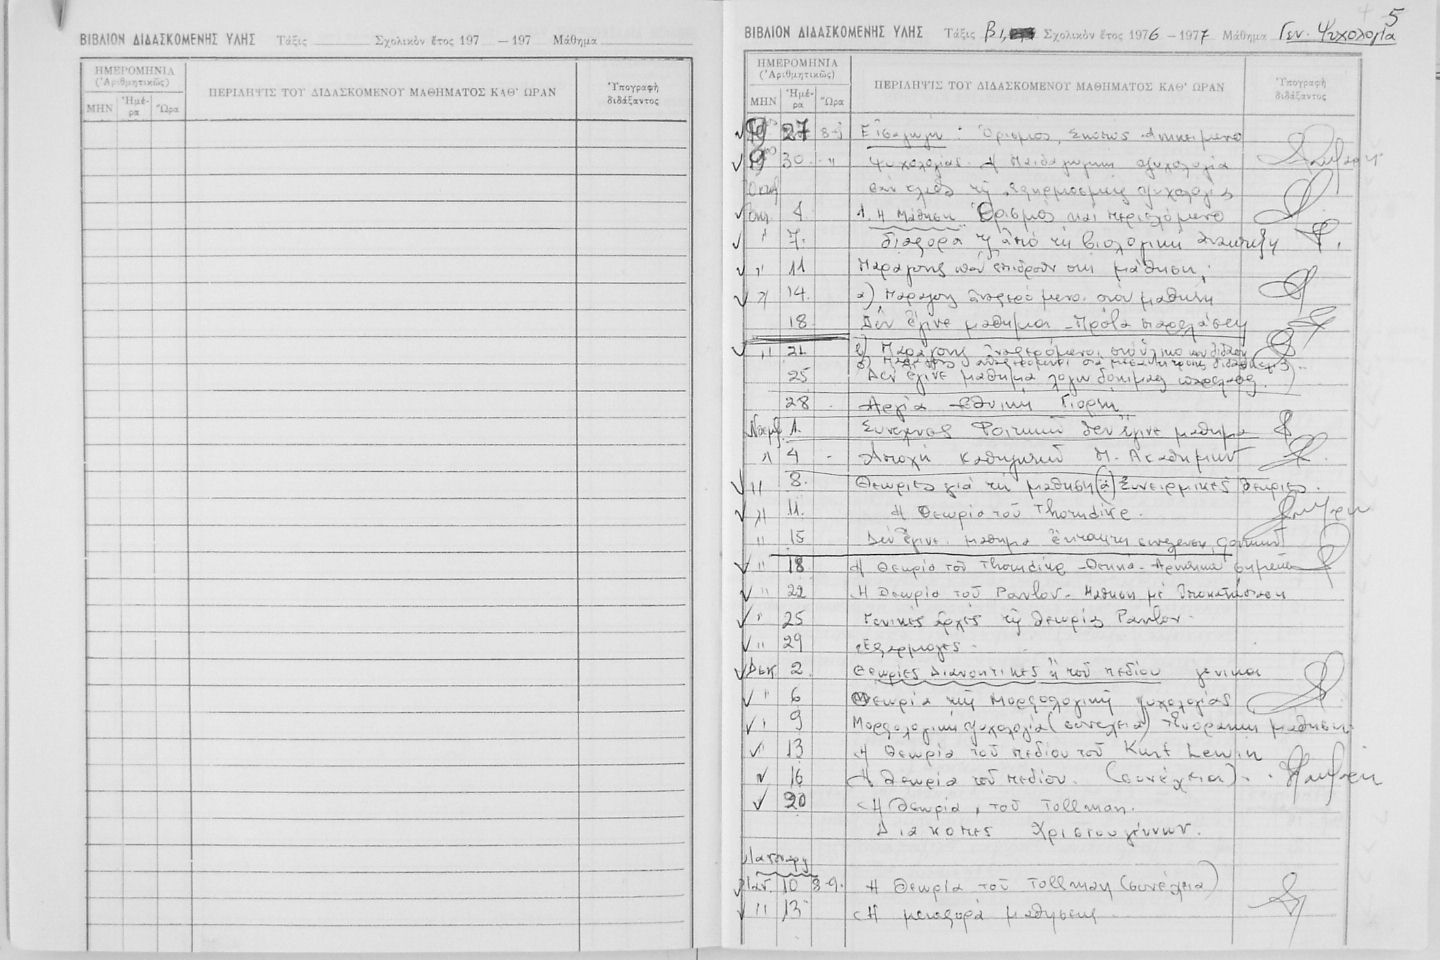 ΒΙΒΛΙΟΝ ΔΙΔΑΣΚΟΜΕΝΗΣ ΥΛΗΣ Τάξις Σχολικὸν ἔτος 197 -197 Μάθημα
ΗΜΕΡΟΜΗΝΙΑ
(Ἀριθμητικῶς)
ΜΗΝ Ἡμέ-ρα Ὥρα
ΠΕΡΙΛΗΨΙΣ ΤΟΥ ΔΙΔΑΣΚΟΜΕΝΟΥ ΜΑΘΗΜΑΤΟΣ ΚΑΘ' ΩΡΑΝ
Ὑπογραφὴ
διδάξαντος
5
ΒΙΒΛΙΟΝ ΔΙΔΑΣΚΟΜΕΝΗΣ ΥΛΗΣ Τάξις Β1, Σχολικὸν ἔτος 1976 -1977 Μάθημα Γεν. Ψυχολογία
ΗΜΕΡΟΜΗΝΙΑ
(Ἀριθμητικῶς)
ΜΗΝ Ἡμέ-ρα Ὥρα
ΠΕΡΙΛΗΨΙΣ ΤΟΥ ΔΙΔΑΣΚΟΜΕΝΟΥ ΜΑΘΗΜΑΤΟΣ ΚΑΘ' ΩΡΑΝ
Ὑπογραφὴ
διδάξαντος
27 Εἰσαγωγή : Ὁρισμός, Σκοπός Ἀντικείμενο
9 30 " Ψυχολογίας. Ἡ Παιδαγωγική ψυχολογία
σαν κλάδος τῆς Ἐφηρμοσμένης ψυχολογίας
Οκτ. 4. 1. Η Μάθηση Ὁρισμός και περιεχόμενο
" 7. διαφορά της ἀπό τη βιολογική ἀνάπτυξη
" 11 Παράγοντες που ἐπιδρούν στη μάθηση,
" 14. α) Παράγοντες ἀναφερόμενοι στον μαθητή
18. Δεν ἔγινε μάθημα - Πρόβα παρελάσεως
" 21 β) Παράγοντες ἀναφερόμενοι στο ὑλικό
25 Δεν ἔγινε μάθημα λόγω δοκιμής παρελάσεως.
28 - Ἀργία - Εθνική Γιορτή
Νοεμβ. 1. Συνέλευσις Φοιτητῶν δεν ἔγινε μάθημα
" 4 - Ἀποχή καθηγητῶν Π. Ακαδημιῶν
" 8. Θεωρίες γιά τη μάθηση (α) Συνειρμικές θεωρίες.
" 11. Η Θεωρία τοῦ Thorndike.
" 15 Δεν ἔγινε μάθημα ἔκτακτη συνέλευση φοιτητῶν
" 18 Η Θεωρία τοῦ Thorndike - Θετικά - Ἀρνητικά σημεία
" 22 Η Θεωρία τοῦ Pavlov - Μάθηση με Υποκατάσταση
" 25 Γενικές ἀρχές της θεωρίας Pavlov.
" 29 Εφαρμογές.
Δεκ 2. Θεωρίες Διανοητικές ἤ τοῦ πεδίου γενικά
" 6 Θεωρία της Μορφολογικής ψυχολογίας
" 9 Μορφολογική ψυχολογία (συνέχεια) Ἐνορατική μάθηση.
" 13 Η Θεωρία τοῦ πεδίου τοῦ Kurt Lewin
" 16 Η Θεωρία τοῦ πεδίου. (συνέχεια).
20 Η Θεωρία, τοῦ Tollman.
Διακοπές Χριστουγέννων.
Ιανουαρ.
Ιαν. 10 8-9. Η Θεωρία τοῦ Tollman (συνέχεια)
" 13 Η μεταφορά μαθήσεως